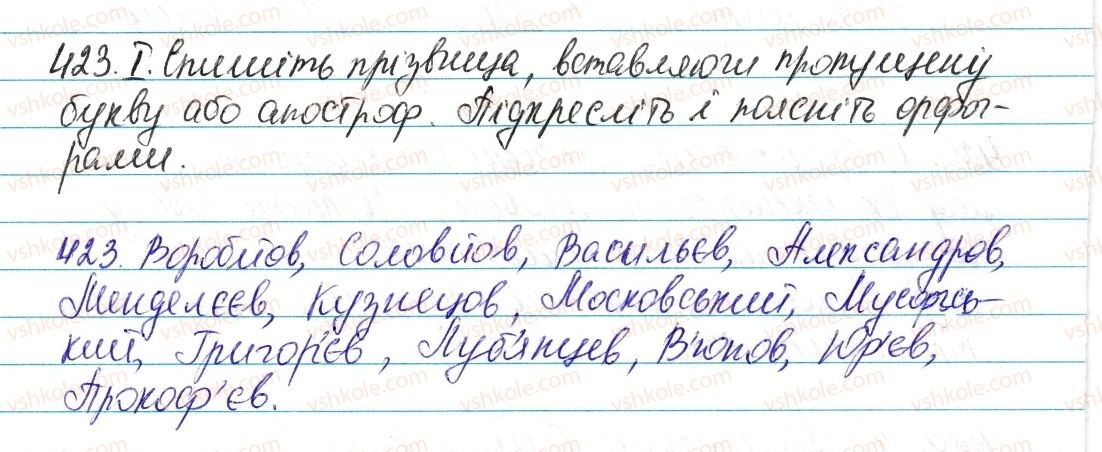 423. I. Спишіть прізвища, вставляючи пропущену
букву або апостроф. Підкресліть і поясніть орфог-
рами.
423. Воробйов, Соловйов, Васильєв, Александров,
Менделєєв, Кузнецов, Московський, Мусоргсь-
кий, Григор'єв, Луб'янцев, В'юнов, Юр'єв,
Прокоф'єв.